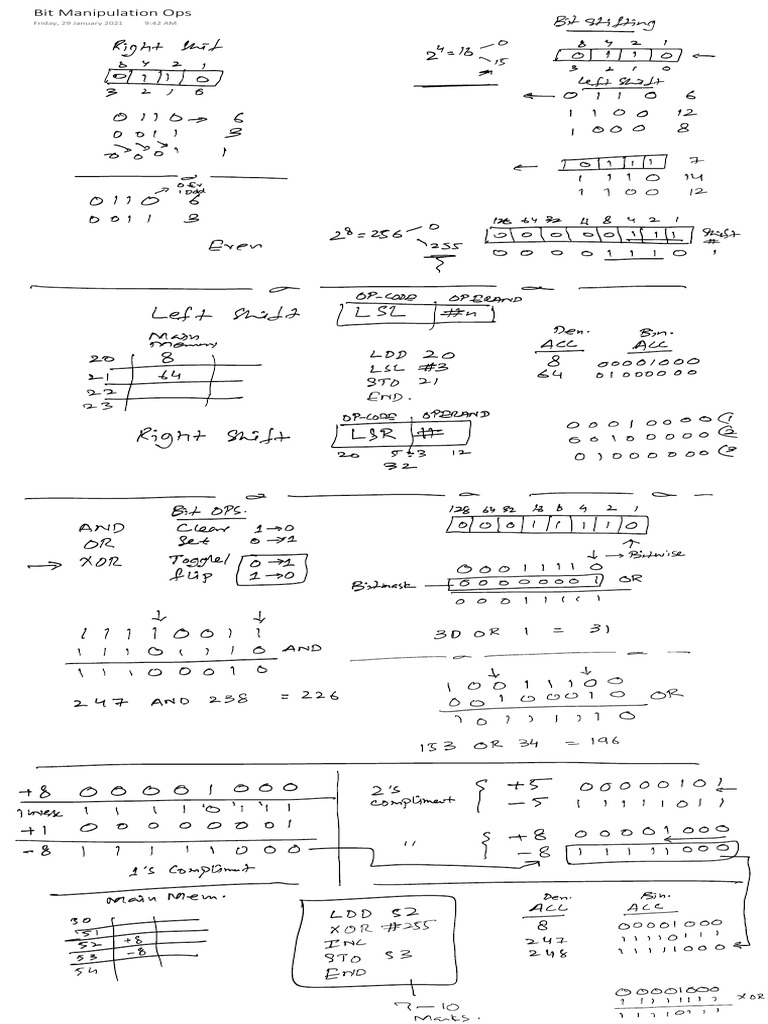 Bit Manipulation Ops
Friday, 29 January 2021 9:42 AM
Right Shif
8 4 2 1
0 1 1 0
3 2 1 0
0 1 1 0 → 6
0 0 1 1 3
0 0 0 1 1
0 Ev
1 Odd
0 1 1 0 6
0 0 1 1 3
Even
2⁴=16 0
15
Bit Shifting
8 4 2 1
0 1 1 0 ←
3 2 1 0
Left Shift
← 0 1 1 0 6
1 1 0 0 12
1 0 0 0 8
← 0 1 1 1 7
1 1 1 0 14
1 1 0 0 12
2⁸=256 0
255
128 64 32 16 8 4 2 1
0 0 0 0 0 1 1 1 Shift
0 0 0 0 1 1 1 0 1
Left Shift
OP-CODE OPERAND
LSL #n
Main Memory
20 8
21 64
22
23
LDD 20
LSL #3
STO 21
END.
Den. Bin.
ACC ACC
8 00001000
64 01000000
Right Shift
OP-CODE OPERAND
LSR #
20 5:3 12
32
0 0 0 1 0 0 0 0 (1
0 0 1 0 0 0 0 0 (2
0 1 0 0 0 0 0 0 (3
Bit OPS.
AND Clear 1→0
OR Set 0→1
→ XOR Toggle/ 0→1
flip 1→0
1 1 1 1 0 0 1 1
1 1 1 0 1 1 1 0 AND
1 1 1 0 0 0 1 0
247 AND 238 = 226
128 64 32 16 8 4 2 1
0 0 0 1 1 1 1 0
→ Bitwise
0 0 0 1 1 1 1 0
Bitmask 0 0 0 0 0 0 0 1 OR
0 0 0 1 1 1 1 1
30 OR 1 = 31
1 0 0 1 1 1 0 0
0 0 1 0 0 0 1 0 OR
1 0 1 1 1 1 1 0
153 OR 34 = 196
+8 0 0 0 0 1 0 0 0
Invese 1 1 1 1 0 1 1 1
+1 0 0 0 0 0 0 0 1
-8 1 1 1 1 1 0 0 0
1's Compliment
2's compliment
+5 0 0 0 0 0 1 0 1 ←
-5 1 1 1 1 1 0 1 1
" +8 0 0 0 0 1 0 0 0
-8 1 1 1 1 1 0 0 0
Main Mem.
50
51
52 +8
53 -8
54
LDD 52
XOR #255
INC
STO 53
END
7-10
Marks.
Den. Bin.
ACC ACC
8 00001000
247 11110111
248 11111000
00001000
11111111 XOR
11110111